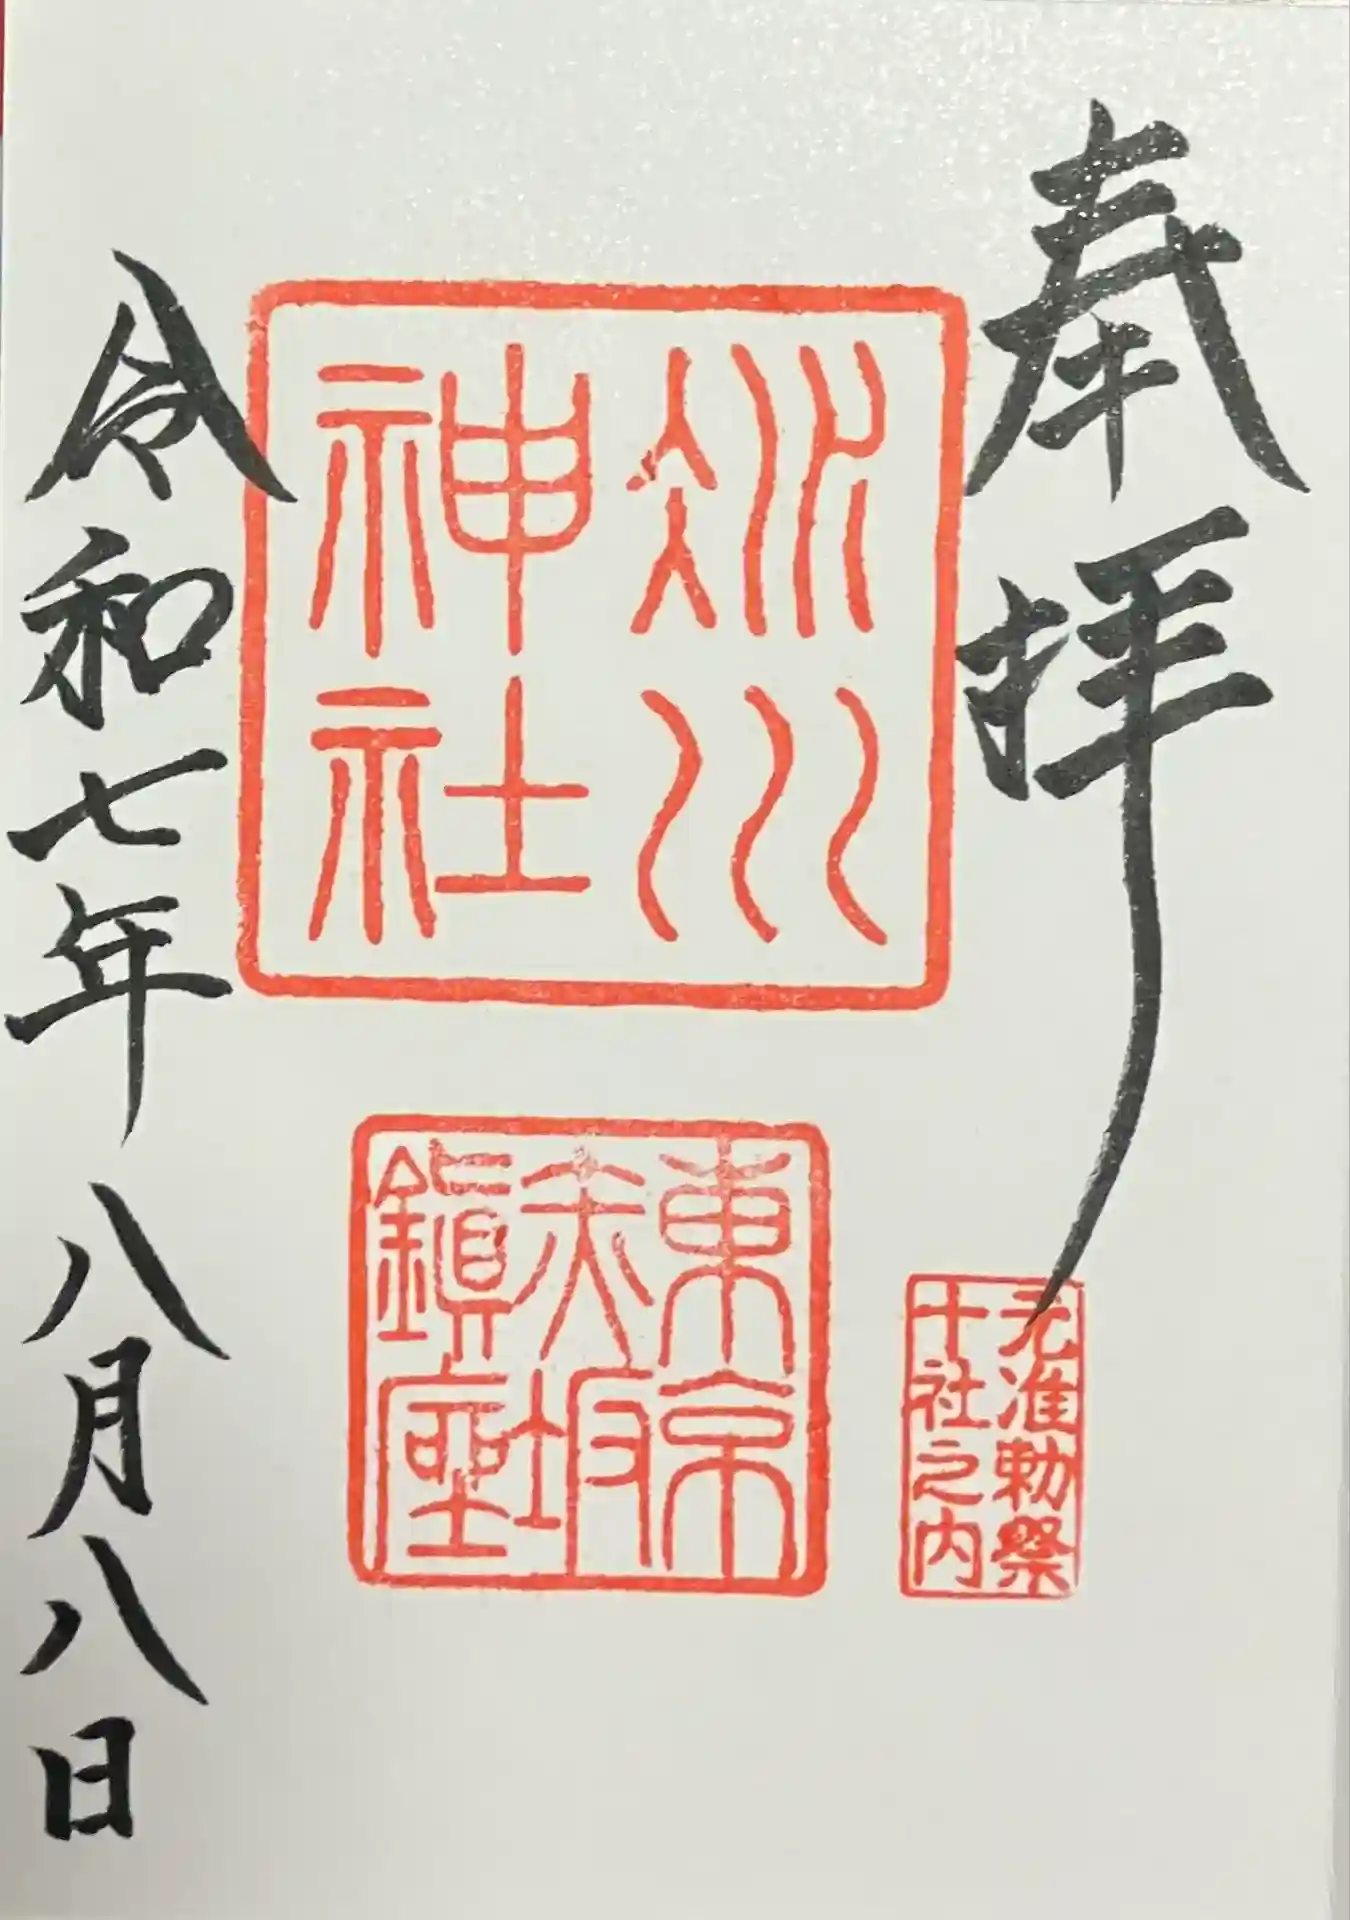 奉拝
元准勅祭
十社之内
氷川
神社
東京
赤坂
鎮座
令和七年八月八日